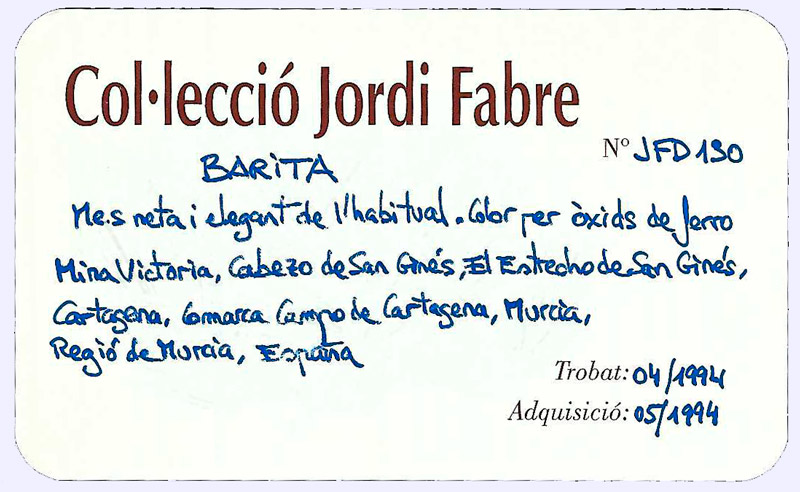 Col·lecció Jordi Fabre
Nº JFD130
BARITA
Més neta i elegant de l'habitual. Color per òxids de ferro
Mina Victoria, Cabezo de San Ginés, El Estrecho de San Ginés,
Cartagena, Comarca Campo de Cartagena, Murcia,
Regió de Murcia, España
Trobat: 04/1994
Adquisició: 05/1994